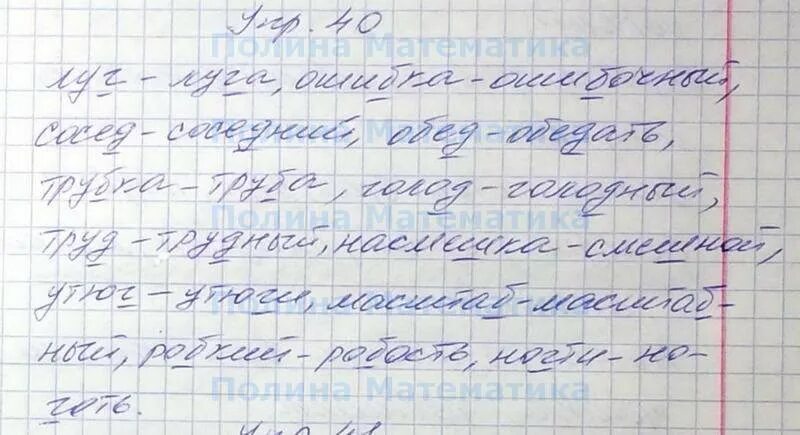 Упр. 40
Полина Математика
луг - луга, ошибка - ошибочный,
сосед - соседний, обед - обедать,
Полина Математика
трубка - труба, голод - голодный,
Полина Математика
труд - трудный, насмешка - смешной,
утюг - утюги, масштаб - масштаб-
Полина Математика
ный, робкий - робость, ногти - но-
Полина Математика
готь.
Упр. 41